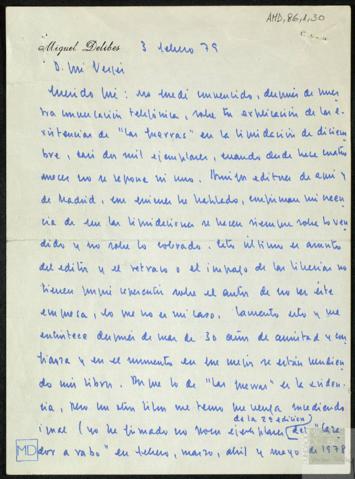 AMD, 86, 1, 30
Miguel Delibes
3 febrero 79
D. José Vergés
Querido José: no quedé convencido, después de nues
tra conversación telefónica, sobre tu explicación de las e-
xistencias de "Las guerras" en la liquidación de diciem
bre, casi dos mil ejemplares, cuando desde hace cuatro
meses no se repone ni uno. Amigos editores de aquí y
de Madrid, con quienes he hablado, confirman mi creen
cia de que las liquidaciones se hacen siempre sobre lo ven
dido y no sobre lo cobrado. Esto último es asunto
del editor y el retraso o el impago de las librerías no
tienen por qué repercutir sobre el autor de no ser éste
empresa, lo que no es mi caso. Lamento esto y me
entristece después de más de 30 años de amistad y con
fianza y en el momento en que mejor se están vendien
do mis libros. Porque lo de "las guerras" es la eviden
cia, pero con otros libros me temo que venga sucediendo
igual (no he firmado no pocos ejemplares
de la 2ª edición
del "Caza
dor a rabo" en febrero, marzo, abril y mayo de 1978
MD